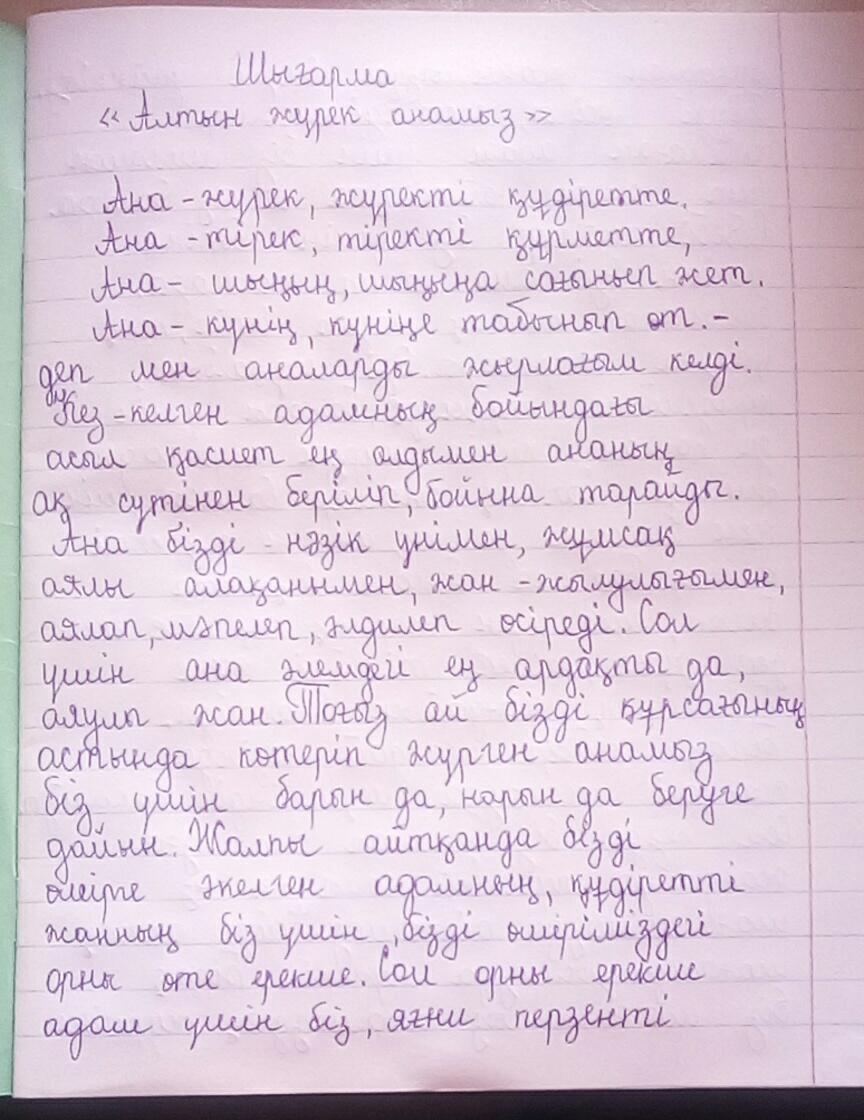 Шығарма
« Алтын жүрек анамыз »
Ана - жүрек, жүректі құдіретте.
Ана - тірек, тіректі құрметте,
Ана - шыңың, шыңыңа сағынып жет.
Ана - күнің, күніңе табынып өт. -
деп мен аналарды жырлағым келді.
Кез - келген адамның бойындағы
асыл қасиет ең алдымен ананың
ақ сүтінен беріліп, бойына тарайды.
Ана бізді - нәзік үнімен, жұмсақ
аялы алақанымен, жан - жылулығымен,
аялап, мәпелеп, әлдилеп өсіреді. Сол
үшін ана әлемдегі ең ардақты да,
аяулы жан. Тоғыз ай бізді құрсағының
астында көтеріп жүрген анамыз
біз үшін барын да, нарын да беруге
дайын. Жалпы айтқанда бізді
өмірге әкелген адамның, құдіретті
жанның біз үшін, бізді өміріміздегі
орны өте ерекше. Сол орны ерекше
адам үшін біз, яғни перзенті